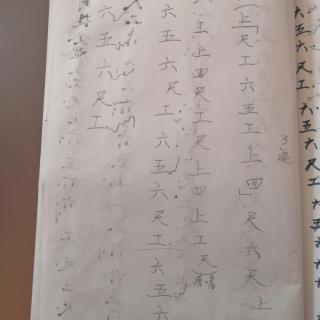 六五六尺工六五六尺工
3遍
上尺工六五工上四尺六尺上
工上四尺工尺上四上工尺
六五六尺工六五六尺工六五六
六五六尺工